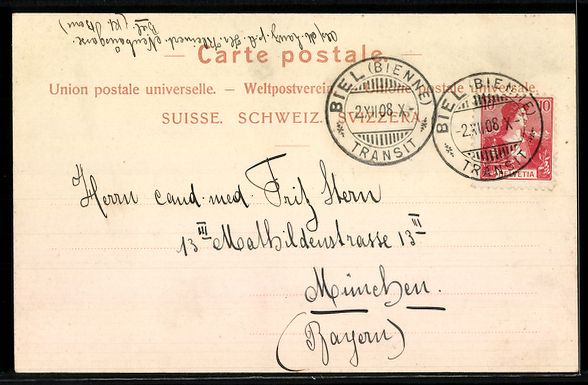 Neubaugasse
Biel. (Kt. Bern)
— Carte postale. —
Union postale universelle. — Weltpostverein. — Unione postale universale.
SUISSE. SCHWEIZ. SVIZZERA.
BIEL (BIENNE)
-2.XII.08.X-
TRANSIT
BIEL (BIENNE)
-2.XII.08.X-
TRANSIT
10
HELVETIA
Herrn cand. med. Fritz Stern
13 III Mathildenstrasse 13 III
München.
(Bayern)